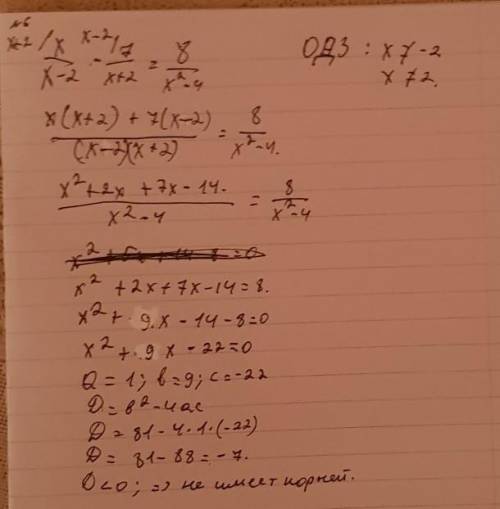 №6
x+2/ x/(x-2) - x-2/ 7/(x+2) = 8/(x²-4)
ОДЗ : x ≠ -2
x ≠ 2.
(x(x+2) + 7(x-2))/((x-2)(x+2)) = 8/(x²-4.)
(x²+2x +7x-14.)/(x²-4) = 8/(x²-4)
x² +2x+7x-14=8.
x² + 9x -14-8=0
x² + 9x -22=0
a = 1; b=9; c=-22
D = b²-4ac
D = 81-4·1·(-22)
D = 81-88=-7.
D<0; => не имеет корней.